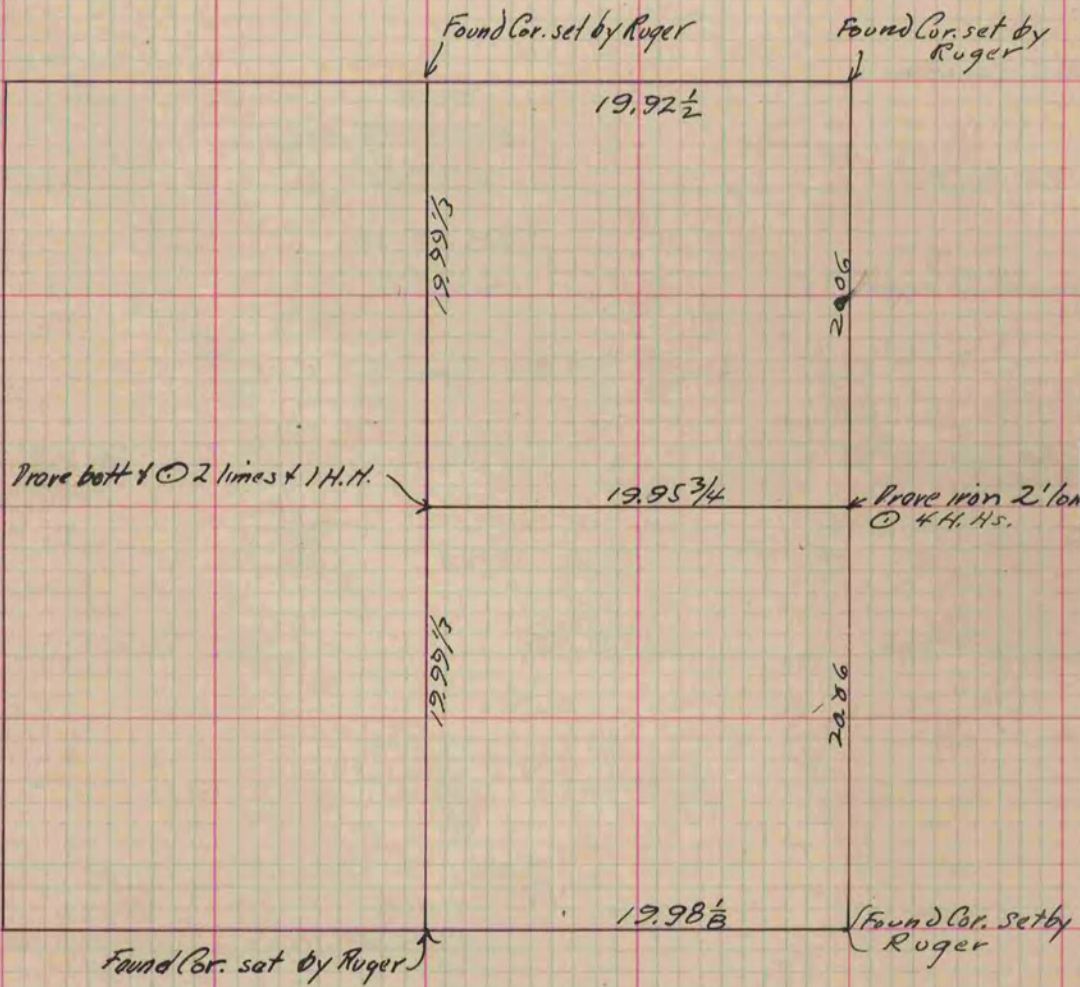 Found Cor. set by Ruger
Found Cor. set by
Ruger
19.92 1/2
19.99 1/3
20.06
Drove bolt & ⊙ 2 limes & 1 H.H.
19.95 3/4
Drove iron 2' lon
⊙ 4 H. Hs.
19.99 1/3
20.06
19.98 1/8
Found Cor. set by
Ruger
Found Cor. sat by Ruger